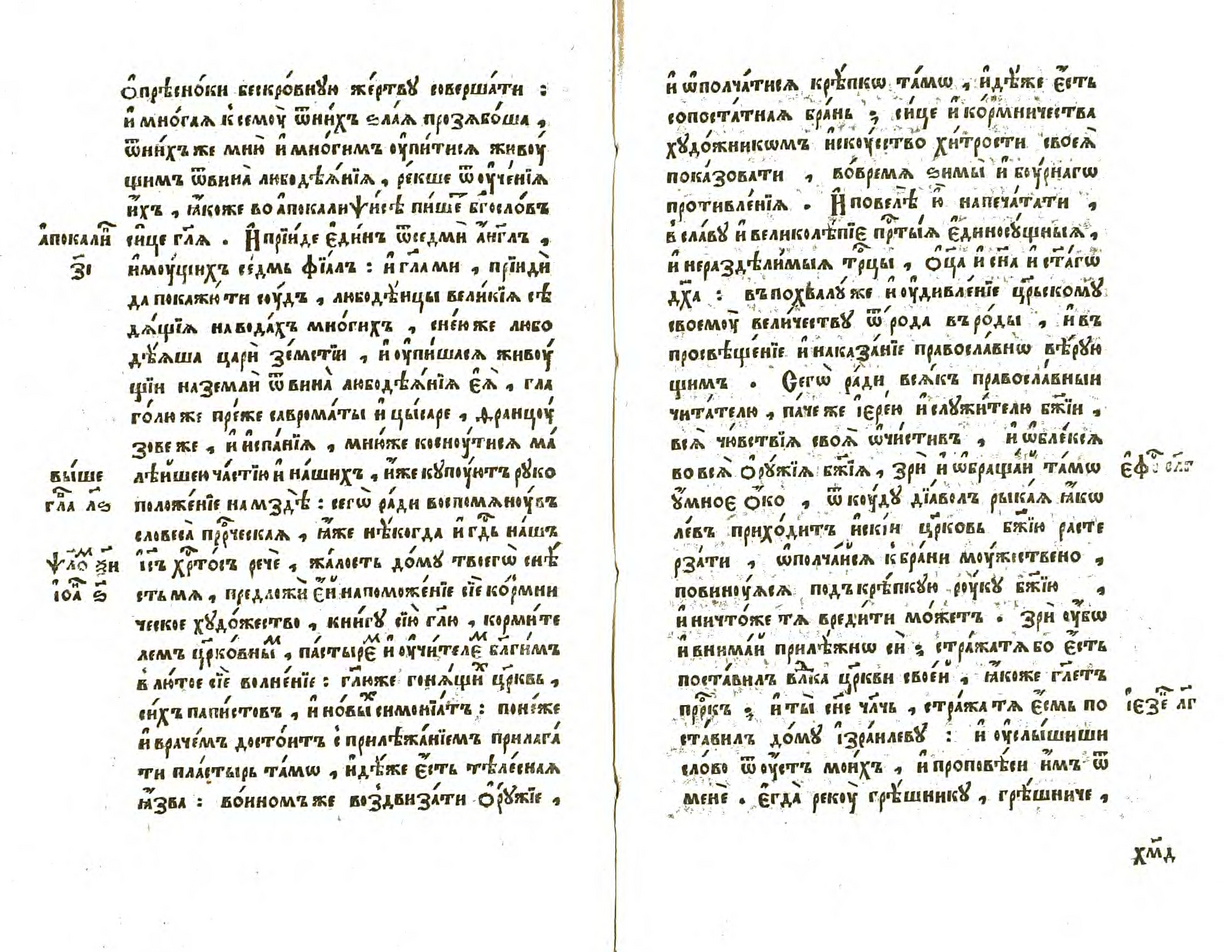 ѻ҆прѣсно́ки безкро́вную же́ртву соверша́ти :
и҆ мно́гая к семоу̀ ѿни́хъ ѕла́я прозѧбо́ша ,
ѿни́хъ же мню̀ и҆ мно́гимъ оу҆пи́тися живоу́
щимъ ѿвина̀ любодѣѧ́нїѧ , ре́кше ѿоу҆че́нїѧ
и҆́хъ , ꙗ҆́коже во а҆пока́лиѱисѣ пи́шеⷮ бг҃осло́въ
си́це гл҃ѧ . И҆ прїи́де є҆ди́нъ ѿседмѝ а҆́нг҃лъ ,
и҆моу́щихъ се́дмь фїа́лъ : и҆ гл҃а ми , прїидѝ
да покажю́ ти соу́дъ , любодѣ́ицы вели́кїѧ сѣ
дѧ́щїѧ на вода́хъ мно́гихъ , сне́ю же любо
дѣ́ѧша ца́рїѐ зе́мстїи , и҆ оу҆пи́шасѧ живоу́
щїи на землѝ ѿ вина̀ любодѣѧ́нїѧ є҆ѧ̀ , гла
го́лю же пре́же савромáты и҆ цы́саре , францоу́
зове же , и҆ и҆спа́нїѧ , мню́ же косноу́тисѧ ма́
лѣ́йшею ча́стїю и҆ на́шихъ , и҆́же купоу́ютъ руко
положе́нїе на мздѣ̀ : сегѡ̀ ра́ди воспомѧноу́въ
словеса̀ прⷪ҇рческаѧ , ꙗ҆́же нѣ́когда и҆ гдⷭ҇ь на́шъ
і҆с҃ъ хрⷭ҇то́съ речѐ , жа́лость до́му твоегѡ̀ снѣ́
сть мѧ̀ , предложѝ є҆й напоможе́нїе сїѐ ко́рмни
ческое худо́жество , кни́гу сїю̀ гл҃ю , корми́те
лемъ цр҃ко́вныⷨ , па́стыреⷨ и҆ оу҆чи́телеⷨ бл҃ги́мъ
в лю́тое сїѐ волне́нїе : гл҃ю же гонѧ́щиⷯ цр҃квь ,
си́хъ папи́стовъ , и҆ но́выⷯ симонїа́тъ : поне́же
и҆ врачє́мъ досто́итъ с прилѣжа́нїемъ прилага́
ти пла́стырь та́мѡ , и҆дѣ́же є҆́сть тѣле́снаѧ
ꙗ҆́зва : во́иномъ же воздвиза́ти ѻ҆ру́жїе ,
а҆покалиⷫ
з҃і
вы́ше
гл҃а л҃ѕ
ѱалоⷨ ѯ҃и
і҆ѡа́ ѕ҃
и҆ ѡ҆полча́тисѧ крѣ́пкѡ та́мѡ , и҆дѣ́же є҆́сть
сопоста́тнаѧ бра́нь ; си́це и҆ ко́рмничества
худо́жникѡмъ и҆скоу́ство хи́трости своеѧ̀
пока́зовати , во́времѧ ѕимы̀ и҆ боу́рнагѡ
противле́нїѧ . И҆ повелѣ̀ ю҆̀ напеча́тати ,
в сла́ву и҆ великолѣ́пїе прⷭ҇ты́ѧ є҆диносу́щныѧ ,
и҆ нераздѣли́мыѧ трⷪ҇цы , ѻ҆ц҃а̀ и҆ сн҃а и҆ ст҃а́гѡ
дх҃а : въ похвалу́ же и҆ оу҆дивле́нїе црⷭ҇ьскому
своемоу̀ вели́честву ѿ ро́да въ ро́ды , и҆ въ
просвѣще́нїе и҆ наказа́нїе правосла́внѡ вѣ́рую
щимъ . Сегѡ̀ ра́ди всѧ́къ правосла́вныи
чита́телю , па́че же і҆ере́ю и҆ служи́телю бж҃їи ,
всѧ̀ чю́вствїѧ своѧ̀ ѡ҆чи́стивъ , и҆ ѡ҆бле́ксѧ
во всѧ̀ ѻ҆ру́жїѧ бж҃їѧ , зрѝ и҆ ѡ҆браща́й та́мѡ
оу҆́мное ѻ҆́ко , ѿ коу́ду дїа́волъ рыка́ѧ ꙗ҆́кѡ
ле́въ прихо́дитъ и҆скі́й цр҃ковь бж҃їю расте
рза́ти , ѡ҆полча́йсѧ к бра́ни моу́жествено ,
повиноу́ѧсѧ подъ крѣ́пкую роу́ку бж҃їю ,
и҆ ничто́же тѧ̀ вреди́ти мо́жетъ . Зрѝ оу҆́бѡ
и҆ внима́й прилѣ́жнѡ си̑ ; стра́жа тѧ бо є҆́сть
поста́вилъ влⷣка цр҃кви свое́й , ꙗ҆́коже гл҃етъ
прⷪ҇ркъ ; и҆ ты̀ сн҃е чл҃чь , стра́жа тѧ̀ є҆́смь по
ста́вилъ до́му і҆зра́илеву : и҆ оу҆слы́шиши
сло́во ѿ оу҆́стъ мои́хъ , и҆ пропові́си и҆̀мъ ѿ
менѐ . Е҆гда̀ рекоу̀ грѣ́шнику , грѣ́шниче ,
і҆езеⷦ л҃г
хм҃д